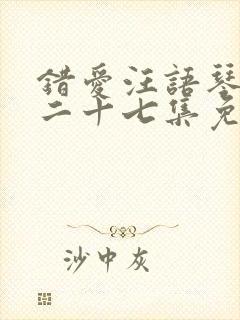 錯愛汪語琴
二十七集免
沙中灰